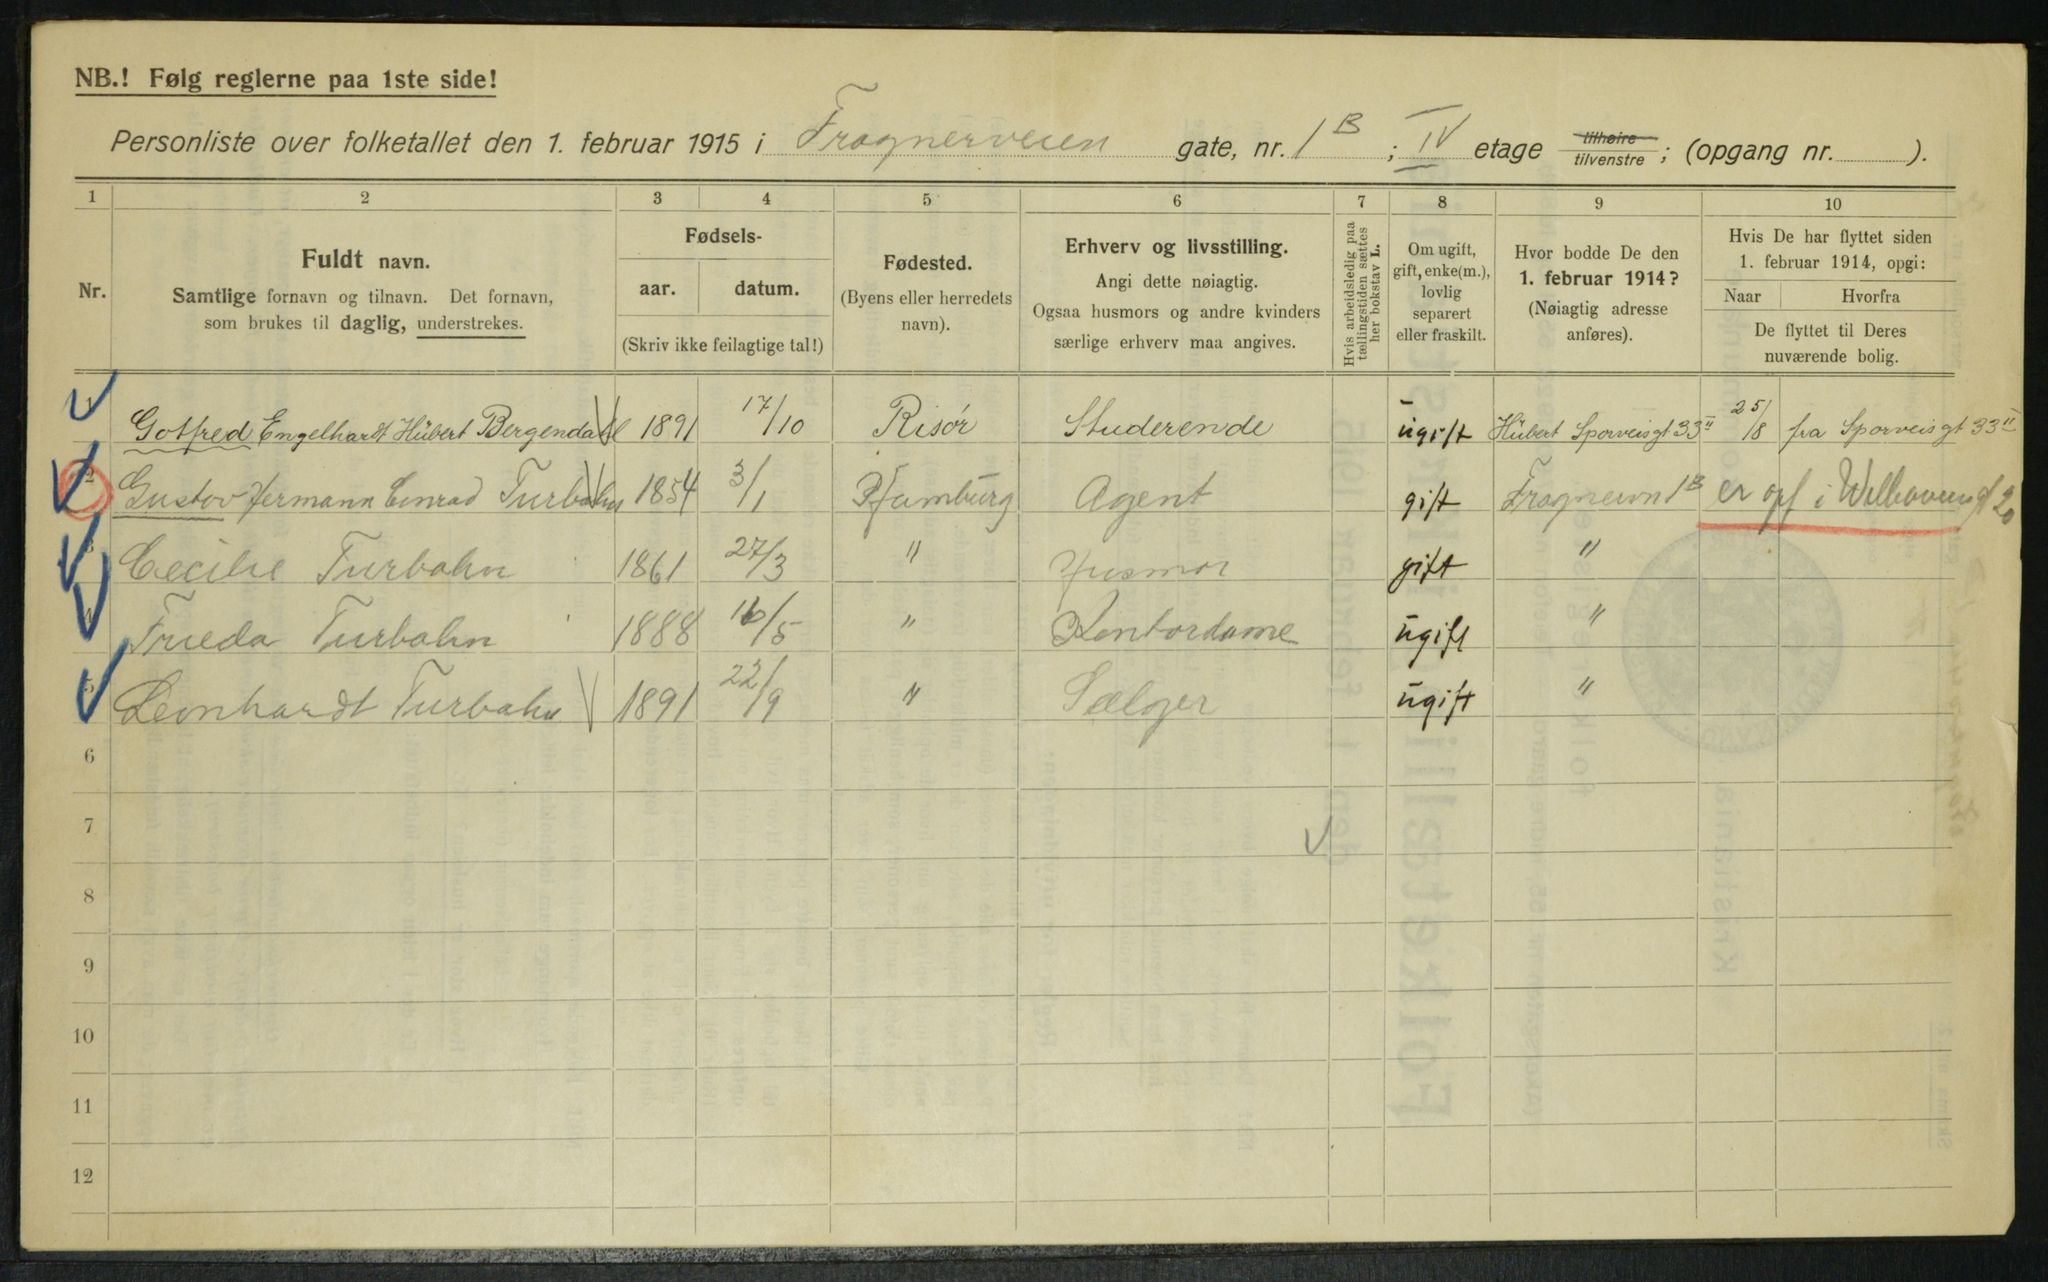 NB.! Følg reglerne paa 1ste side!
Personliste over folketallet den 1. februar 1915 i Frognerveien gate, nr. 1B; IV etage tilhøire tilvenstre; (opgang nr. ).
1 2 3 4 5 6 7 8 9 10
Nr.
Fuldt navn.
Samtlige fornavn og tilnavn. Det fornavn,
som brukes til daglig, understrekes.
Fødsels-
aar. datum.
(Skriv ikke feilagtige tal!)
Fødested.
(Byens eller herredets
navn).
Erhverv og livsstilling.
Angi dette nøiagtig.
Ogsaa husmors og andre kvinders
særlige erhverv maa angives.
Hvis arbeidsledig paa
tællingstiden sættes
her bokstav L.
Om ugift,
gift, enke(m.),
lovlig
separert
eller fraskilt.
Hvor bodde De den
1. februar 1914?
(Nøiagtig adresse
anføres).
Hvis De har flyttet siden
1. februar 1914, opgi:
Naar Hvorfra
De flyttet til Deres
nuværende bolig.
1 Gotfred Engelhardt Hübert Bergendahl 1891 17/10 Risør Studerende ugift Hübert Sporveisgt 33 II 25/8 fra Sporveisgt 33 II
2 Gustav Hermann Conrad Turbahn 1854 3/1 Hamburg Agent gift Frognervn 1B er opf i 20
3 Cecilie Turbahn 1861 27/3 " Husmor gift "
4 Frieda Turbahn 1888 16/5 " Kontordame ugift "
5 Leonhardt Turbahn 1891 22/9 " Sælger ugift "
6
7
8
9
10
11
12